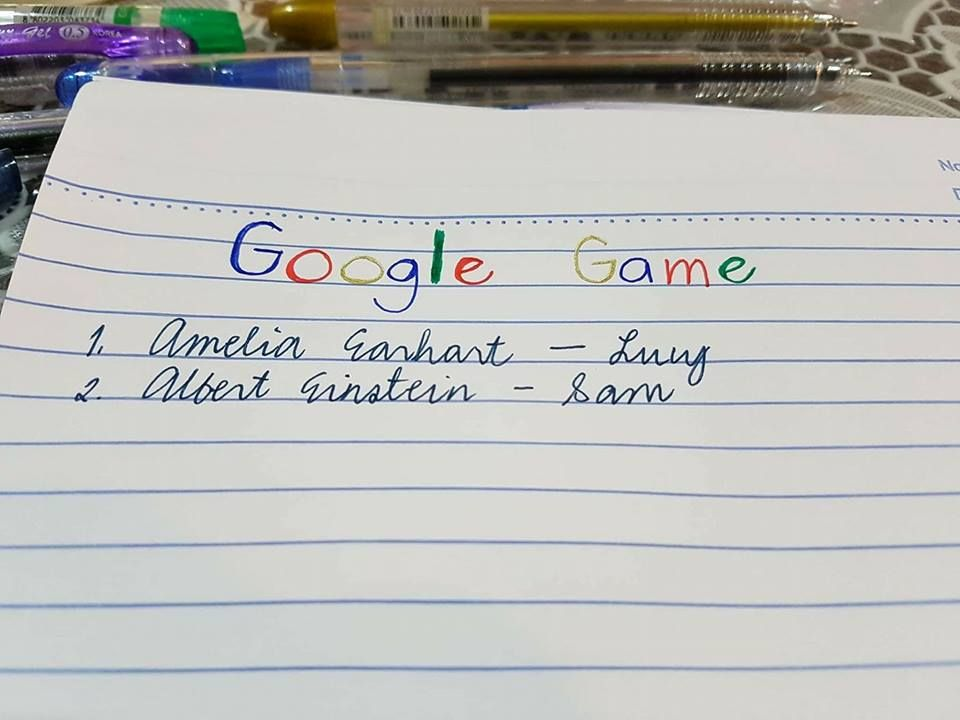 Gel 0.5 KOREA
No
Google Game
1. Amelia Earhart – Lucy
2. Albert Einstein – Sam